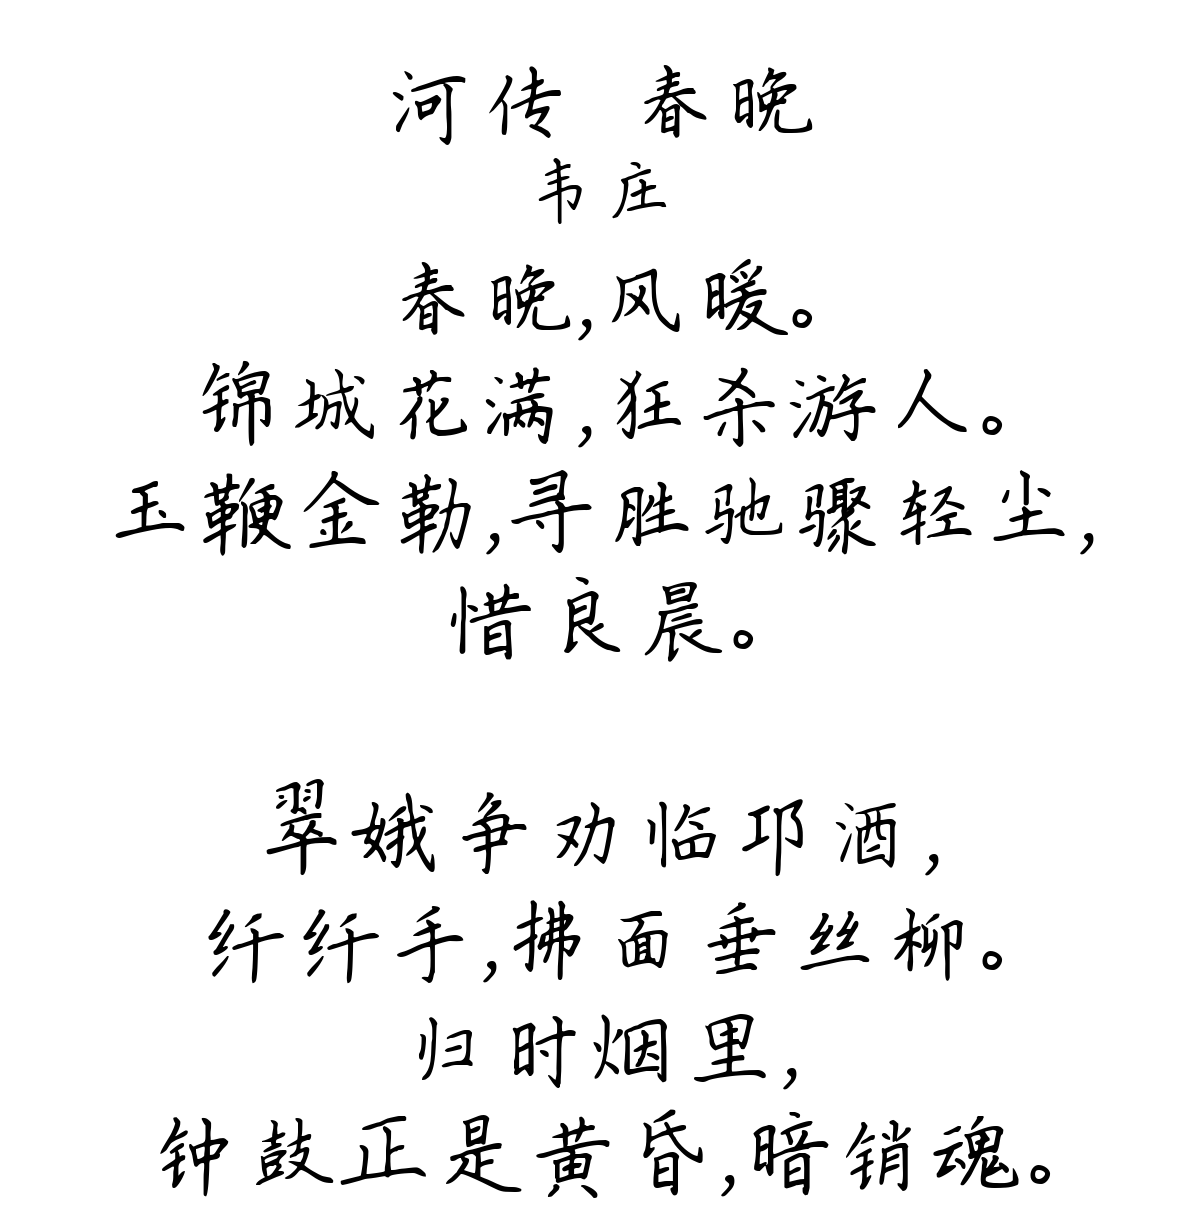 河传 春晚
韦庄
春晚,风暖。
锦城花满,狂杀游人。
玉鞭金勒,寻胜驰骤轻尘,
惜良晨。
翠娥争劝临邛酒,
纤纤手,拂面垂丝柳。
归时烟里,
钟鼓正是黄昏,暗销魂。